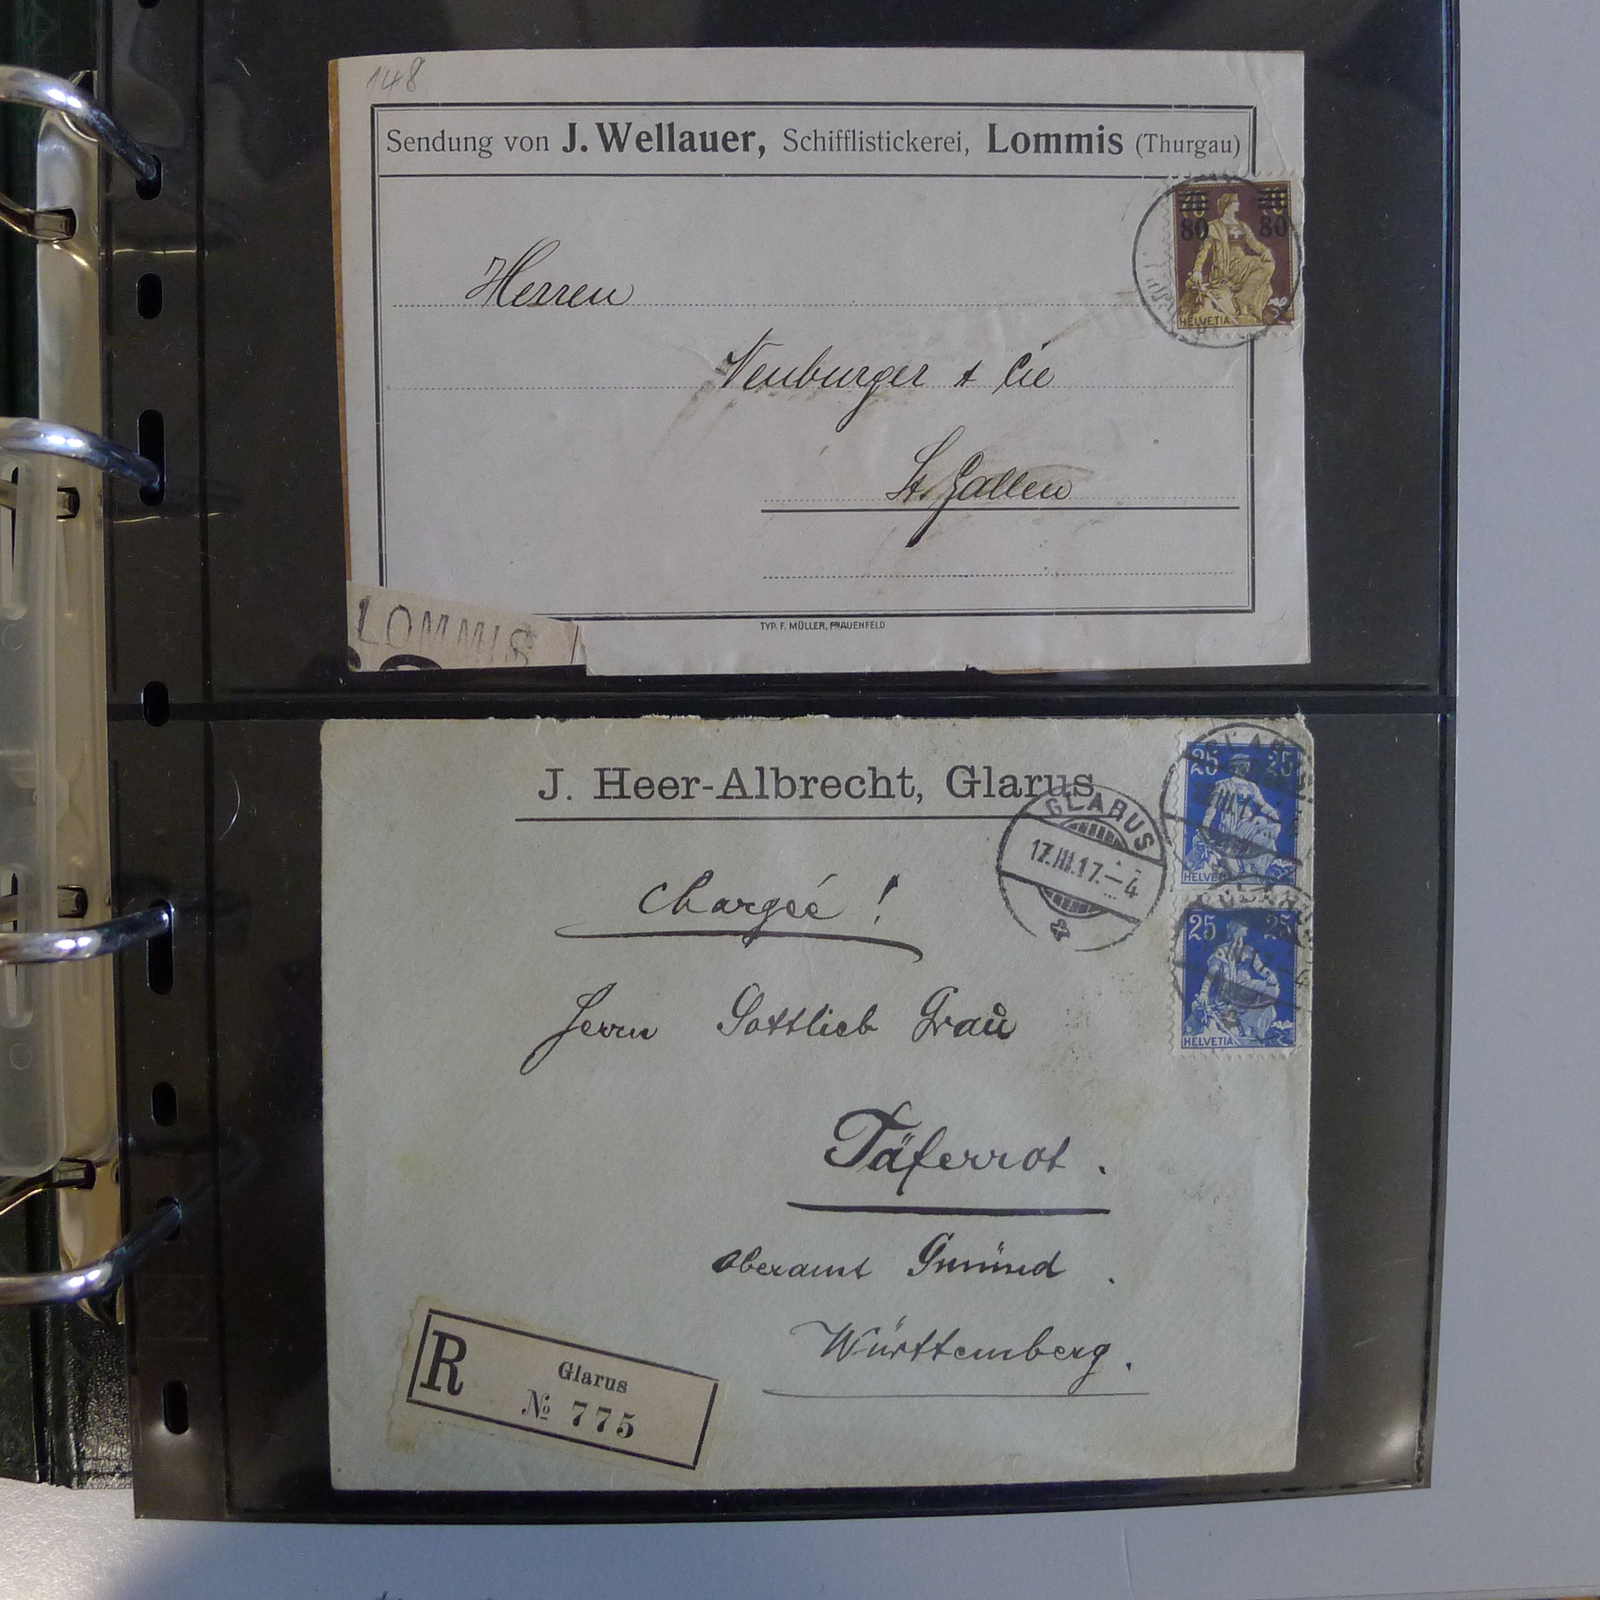 148
Sendung von J. Wellauer, Schifflistickerei, Lommis (Thurgau)
80 80
HELVETIA
Herren
Neuburger & Cie
St. Gallen
LOMMIS
TYP. F. MÜLLER, FRAUENFELD
J. Heer-Albrecht, Glarus
GLARUS
17.III.17.–4
25 25
HELVETIA
Chargée!
25 25
HELVETIA
Herrn Gottlieb Grau
Täferrot.
Oberamt Gmünd.
Württemberg.
R Glarus
№ 775